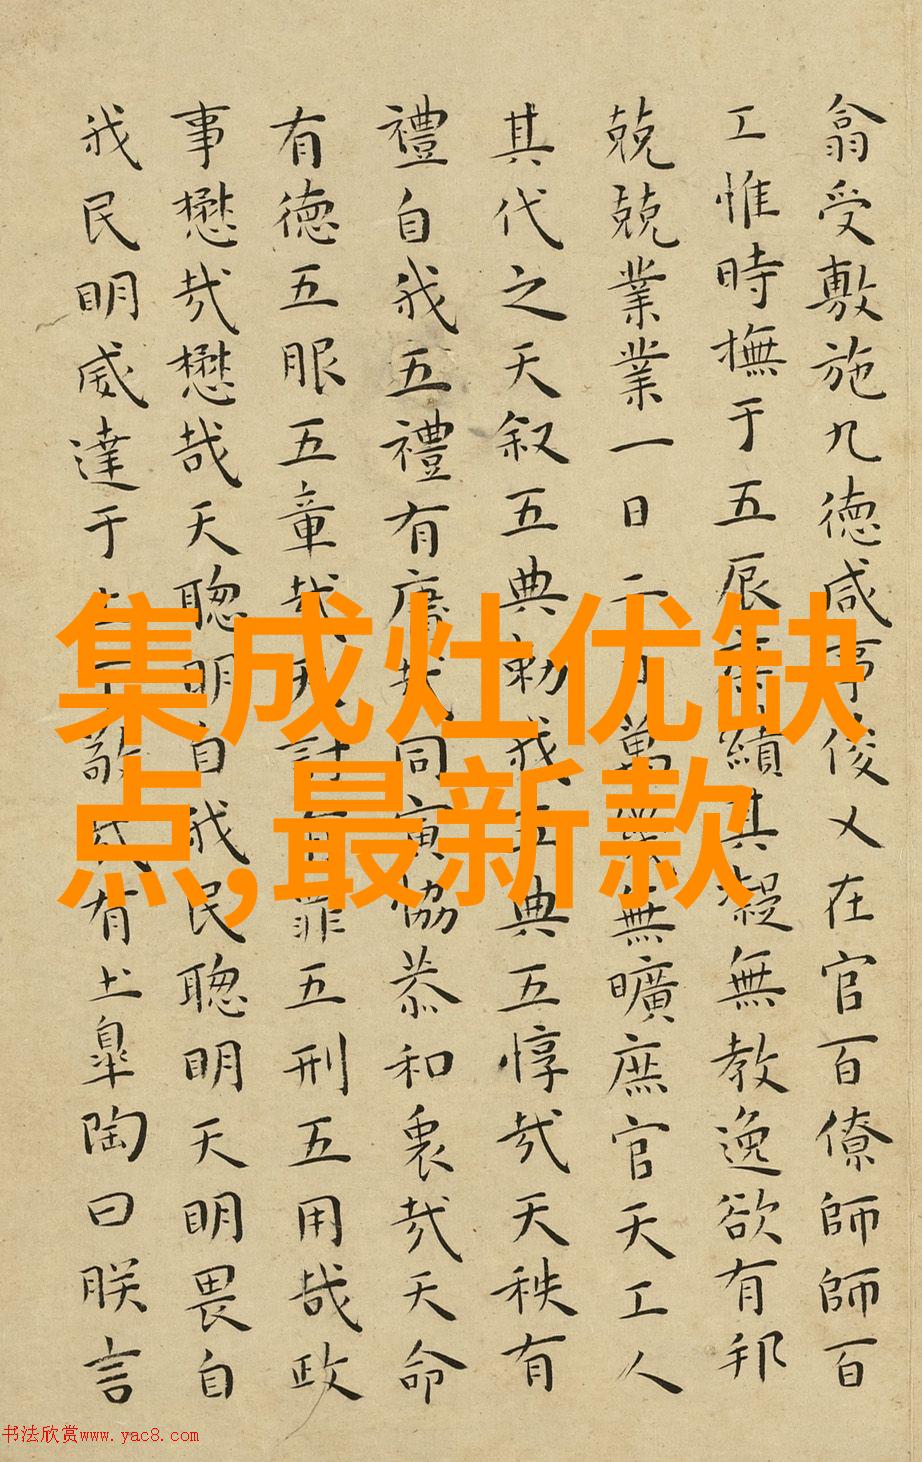 翕受敷施九徳咸事俊乂在官百僚師師百
工惟時撫于五辰庶績其凝無教逸欲有邦
兢兢業業一日二日萬幾無曠庶官天工人
其代之天叙五典勑我五典五惇哉天秩有
禮自我五禮有庸哉同寅協恭和衷哉天命
有徳五服五章哉天討有罪五刑五用哉政
事懋哉懋哉天聦明自我民聦明天明畏自
我民明威達于上下敬哉有土皋陶曰朕言
集成灶优缺
点,最新款
书法欣赏www.yac8.com